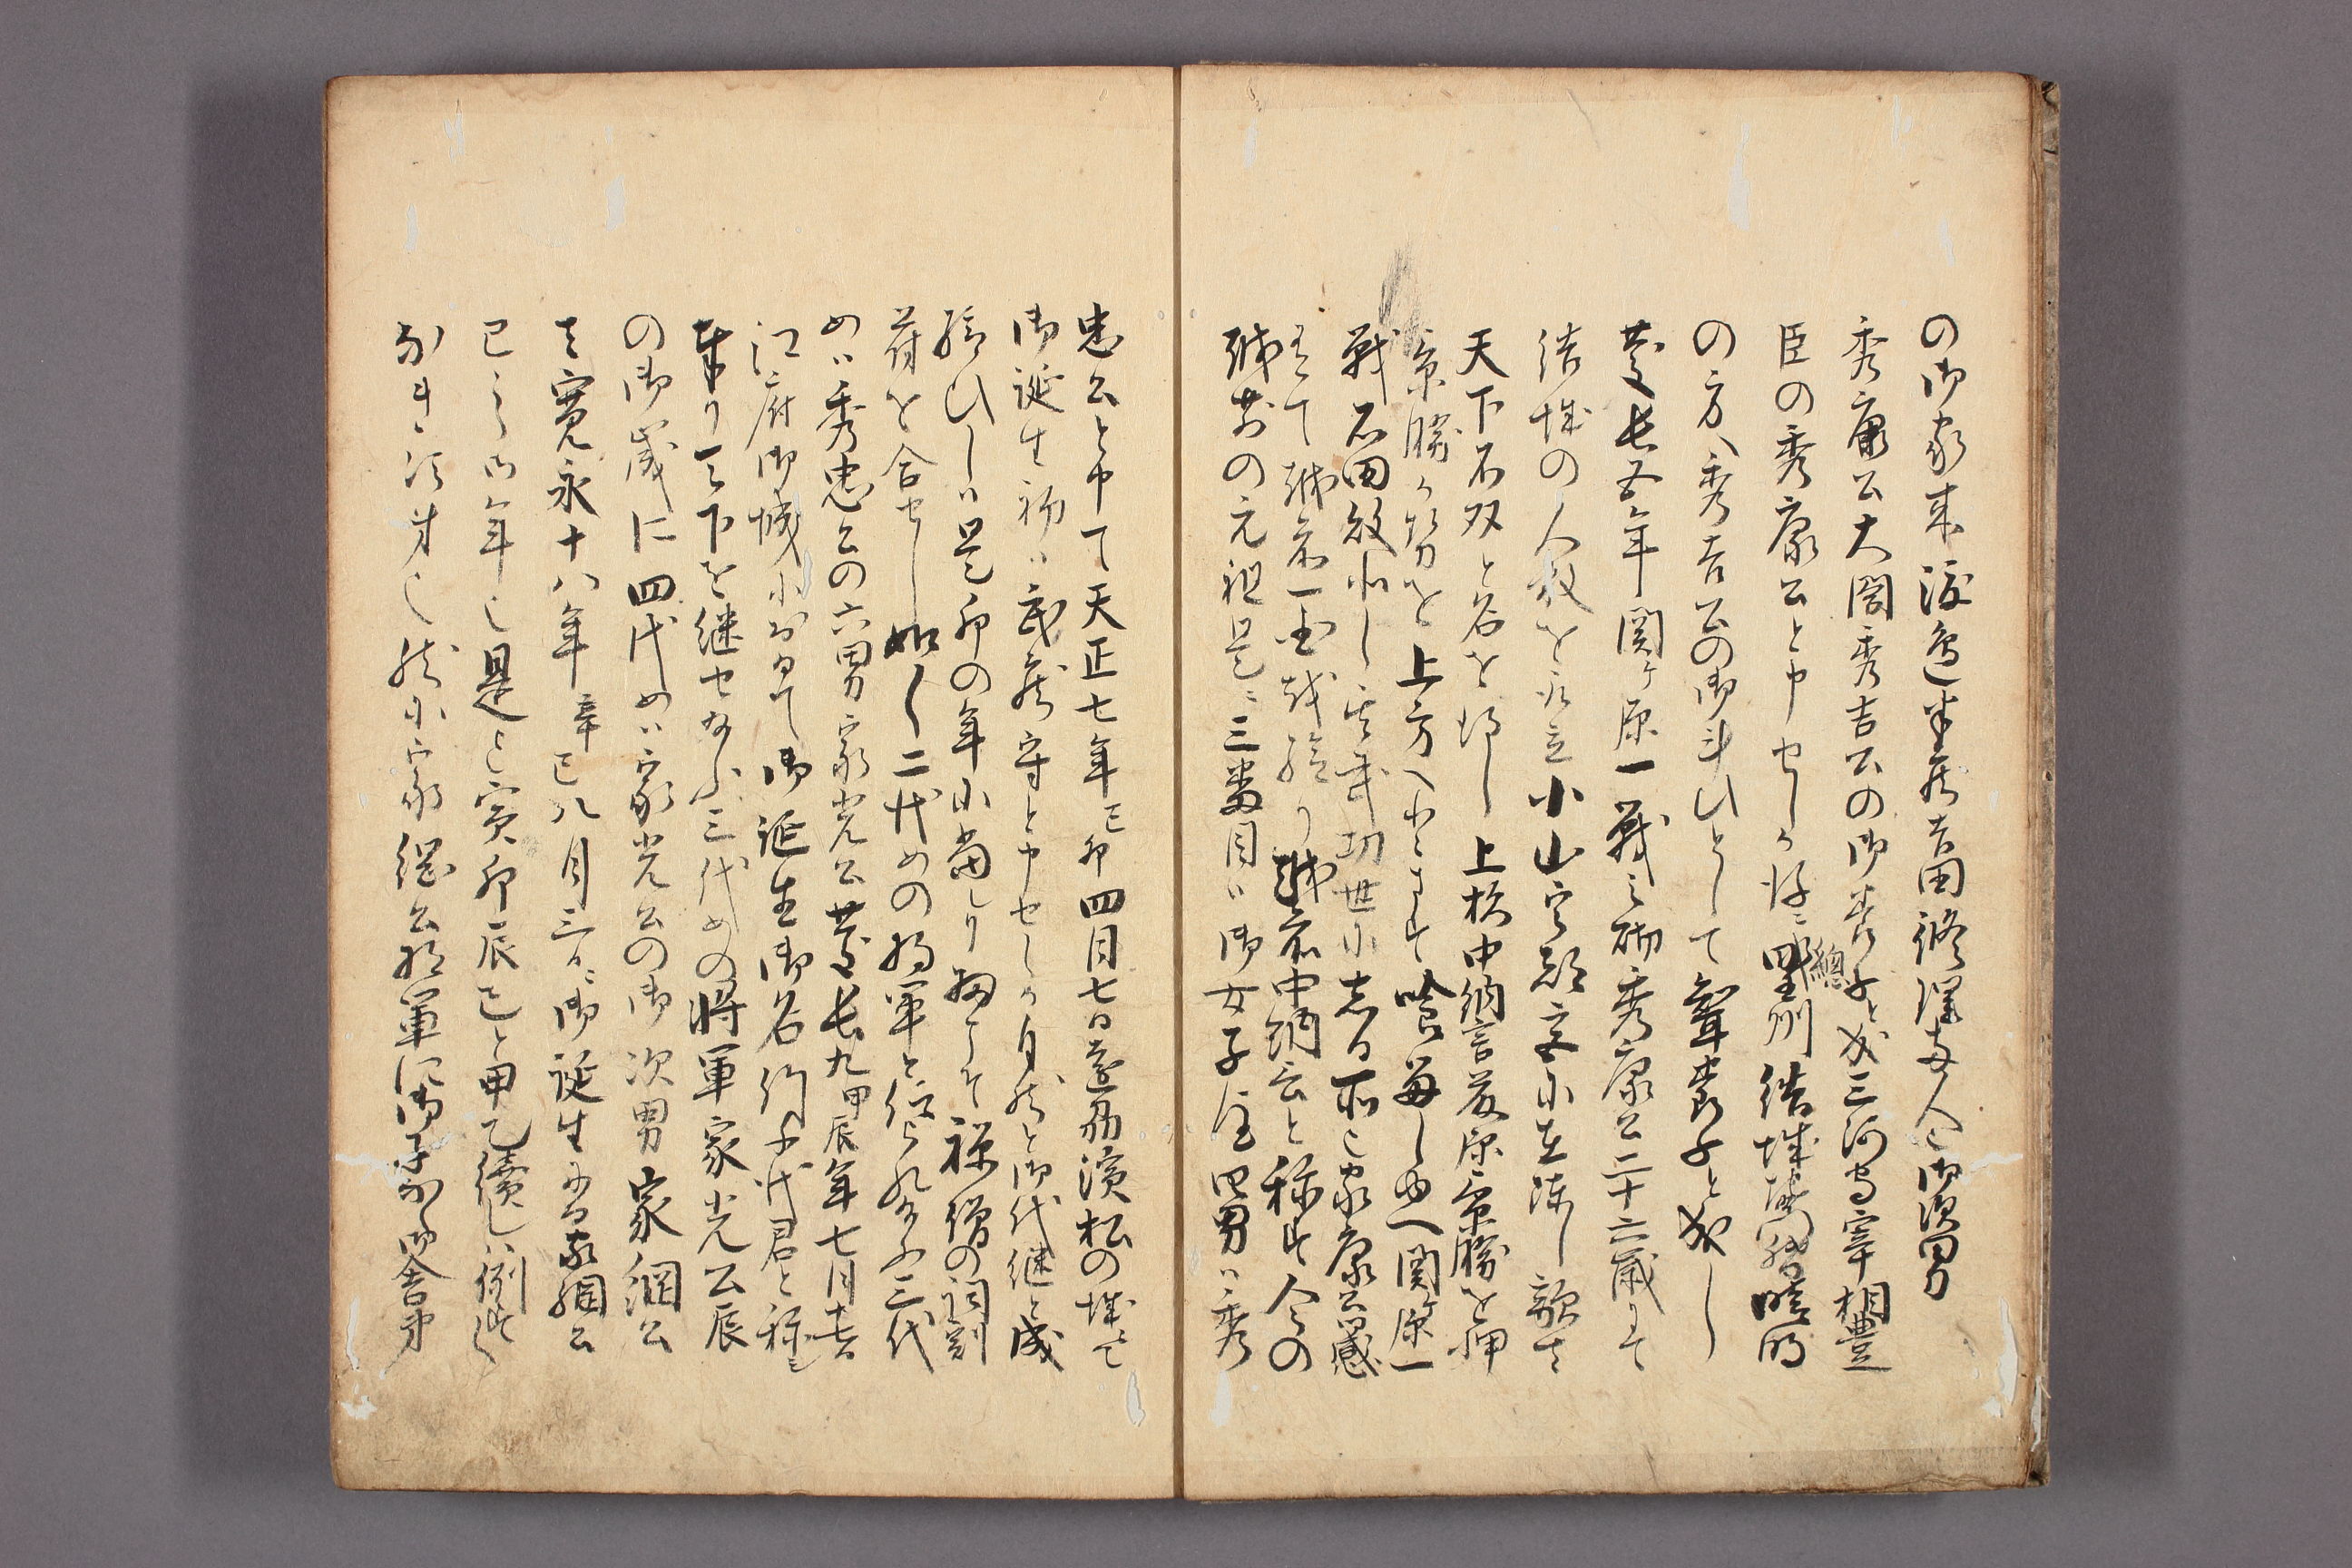 の御家来渡邉半蔵吉田修理両人也御次男
秀康公大閤秀吉公の御養子と成三河守宰相豊
臣の秀康公と申せしか後ニ総州結城 晴朝
の方へ秀吉公の御斗ひとして聟養子と成し
慶長五年関ヶ原一戦之砌秀康公二十六歳にて
結城の人数を 小山宇都宮に在陣し敵は
天下不双と名を得し上杉中納言藤原景勝を押
景勝か勢を上方へ出さすして喰留し由へ関ヶ原一
戦石田敗北し其武功世に 家康公感
有て越前一国を給り越前中納言と称す今の
越前の元祖是ニ三番目ハ御女子 四男ハ秀
忠公と申て天正七年己卯四月七日遠州濱松の城にて
御誕生初ハ武蔵守と申せしか自然と御代継と成
給ひしハ是卯の年に當しり 禅僧の詞割
符を合せし如く二代めの将軍と仰れ給ふ三代
めハ秀忠公の六男家光公慶長九甲辰年七月
江府御城において御誕生御名竹千代君と称し
奉り天下を継せ給ふ三代めの将軍家光公辰
の御歳に四代めハ家光公の御次男家綱公
は寛永十八年辛巳八月三日ニ御誕生 家綱公
巳の御年也是と寅卯辰巳と申 續し例
なき次第也然に家綱公将軍に御子なく御舎弟